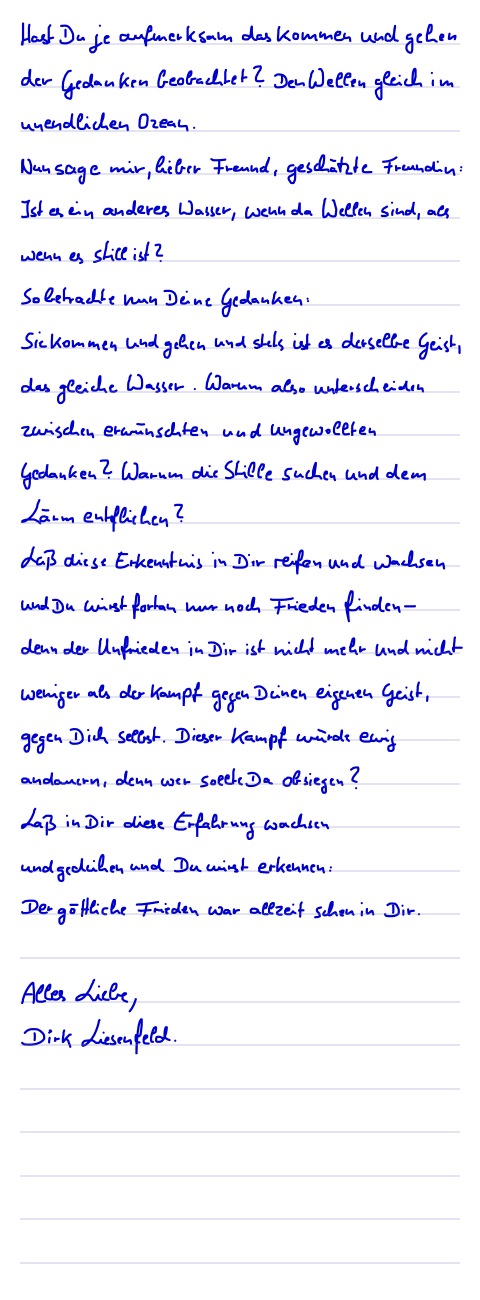 Hast Du je aufmerksam das kommen und gehen
der Gedanken beobachtet? Den Wellen gleich im
unendlichen Ozean.
Nun sage mir, lieber Freund, geschätzte Freundin:
Ist es ein anderes Wasser, wenn da Wellen sind, als
wenn es still ist?
So betrachte nun Deine Gedanken:
Sie kommen und gehen und stets ist es derselbe Geist,
das gleiche Wasser. Warum also unterscheiden
zwischen erwünschten und ungewollten
Gedanken? Warum die Stille suchen und dem
Lärm entfliehen?
Laß diese Erkenntnis in Dir reifen und wachsen
und Du wirst fortan nur noch Frieden finden–
denn der Unfrieden in Dir ist nicht mehr und nicht
weniger als der Kampf gegen Deinen eigenen Geist,
gegen Dich selbst. Dieser Kampf würde ewig
andauern, denn wer sollte Da obsiegen?
Laß in Dir diese Erfahrung wachsen
und gedeihen und Du wirst erkennen:
Der göttliche Frieden war allzeit schon in Dir.
Alles Liebe,
Dirk Liesenfeld.